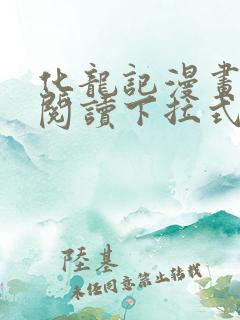 化龍記漫畫
閱讀下拉式
陸基
未經同意禁止轉載